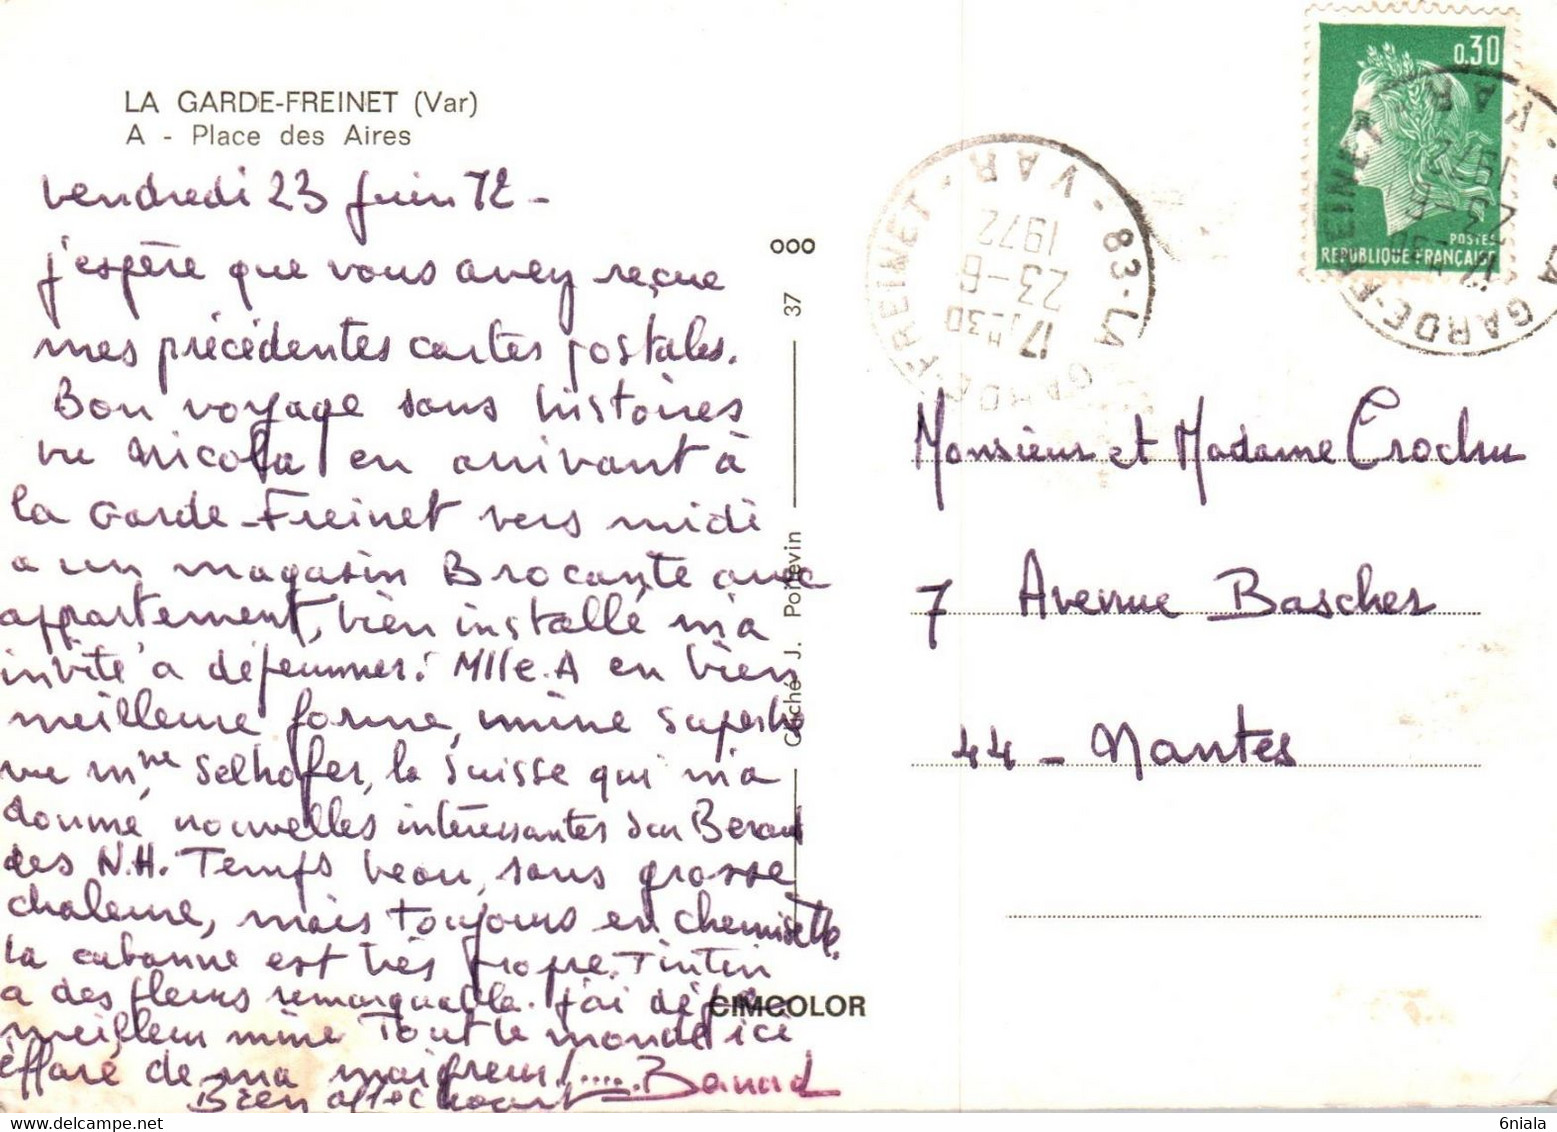 LA GARDE-FREINET (Var)
A - Place des Aires
Vendredi 23 Juin 72 -
j'espère que vous avez reçue
mes précédentes cartes postales.
Bon voyage sans histoires
vu Nicolas en arrivant à
la Garde-Freinet vers midi
a un magasin Brocante avec
appartement, bien installé m'a
invité à déjeuner. Mlle. A en bien
meilleure forme, mine superbe
vu Mme Selhofer, la Suisse qui m'a
donné nouvelles intéressantes sur
des N.H. Temps beau, sans grosse
chaleur, mais toujours en chemisette.
la cabanne est très propre. Tintin
a des fleurs remarquable. J'ai déjà
meilleur mine Tout le monde ici
effaré de ma maigreur!..... Bernard
Bien affectueusement
ooo
Cliché J. Poitevin 37
CIMCOLOR
0,30
POSTES
REPUBLIQUE FRANÇAISE
83-LA GARDE-FREINET · VAR
17H30
23-6
1972
83-LA GARDE-FREINET · VAR
17H30
23-6
1972
Monsieur et Madame Crochu
7 Avenue Bascher
44 - Nantes
6niala